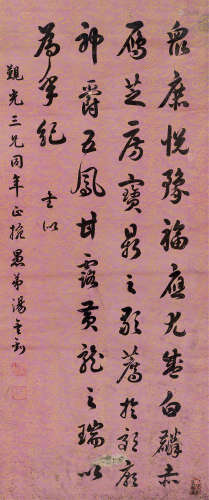 衆庶悅豫福應尤盛白麟赤
鴈芝房寶鼎之歌薦於郊廟
神爵五鳳甘露黃龍之瑞以
為年紀 是以
觀光三兄同年正捥 愚弟湯金釗